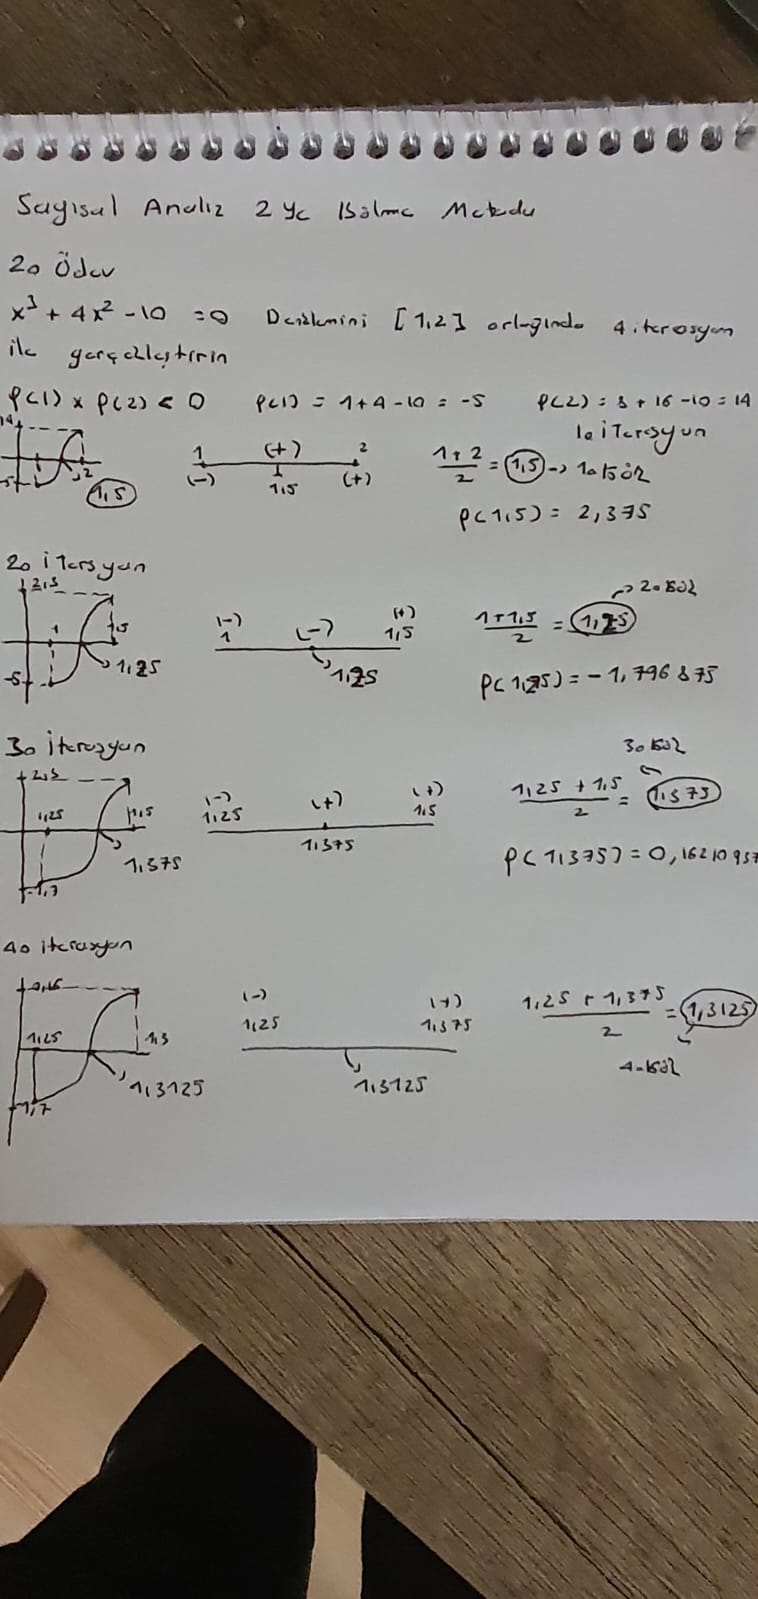 Sayısal Analiz 2 ye Bölme Metodu
2. Ödev
x³ + 4x² - 10 = 0 Denklemini [1,2] aralığında 4 iterasyon
ile gerçekleştirin
f(1) x f(2) < 0 f(1) = 1+4-10 = -5 f(2) = 8 + 16 - 10 = 14
1. iterasyon
14 -5 2 1,5
1 (+) 2
(-) 1,5 (+)
1+2/2 = 1,5 → 1. böl
f(1,5) = 2,375
2. iterasyon
2,3 1 1,5 -5 1,25
(-) (-) (+)
1 1,25 1,5
1+1,5/2 = 1,25 → 2. böl
f(1,25) = -1,796875
3. iterasyon
2,3 1,25 1,5 -1,7 1,375
(-) (+) (+)
1,25 1,375 1,5
1,25 + 1,5/2 = 1,375 3. böl
f(1,375) = 0,1621093
4. iterasyon
0,16 1,25 1,3 -1,7 1,3125
(-) (+)
1,25 1,375
1,3125
1,25 + 1,375/2 = 1,3125
4. böl